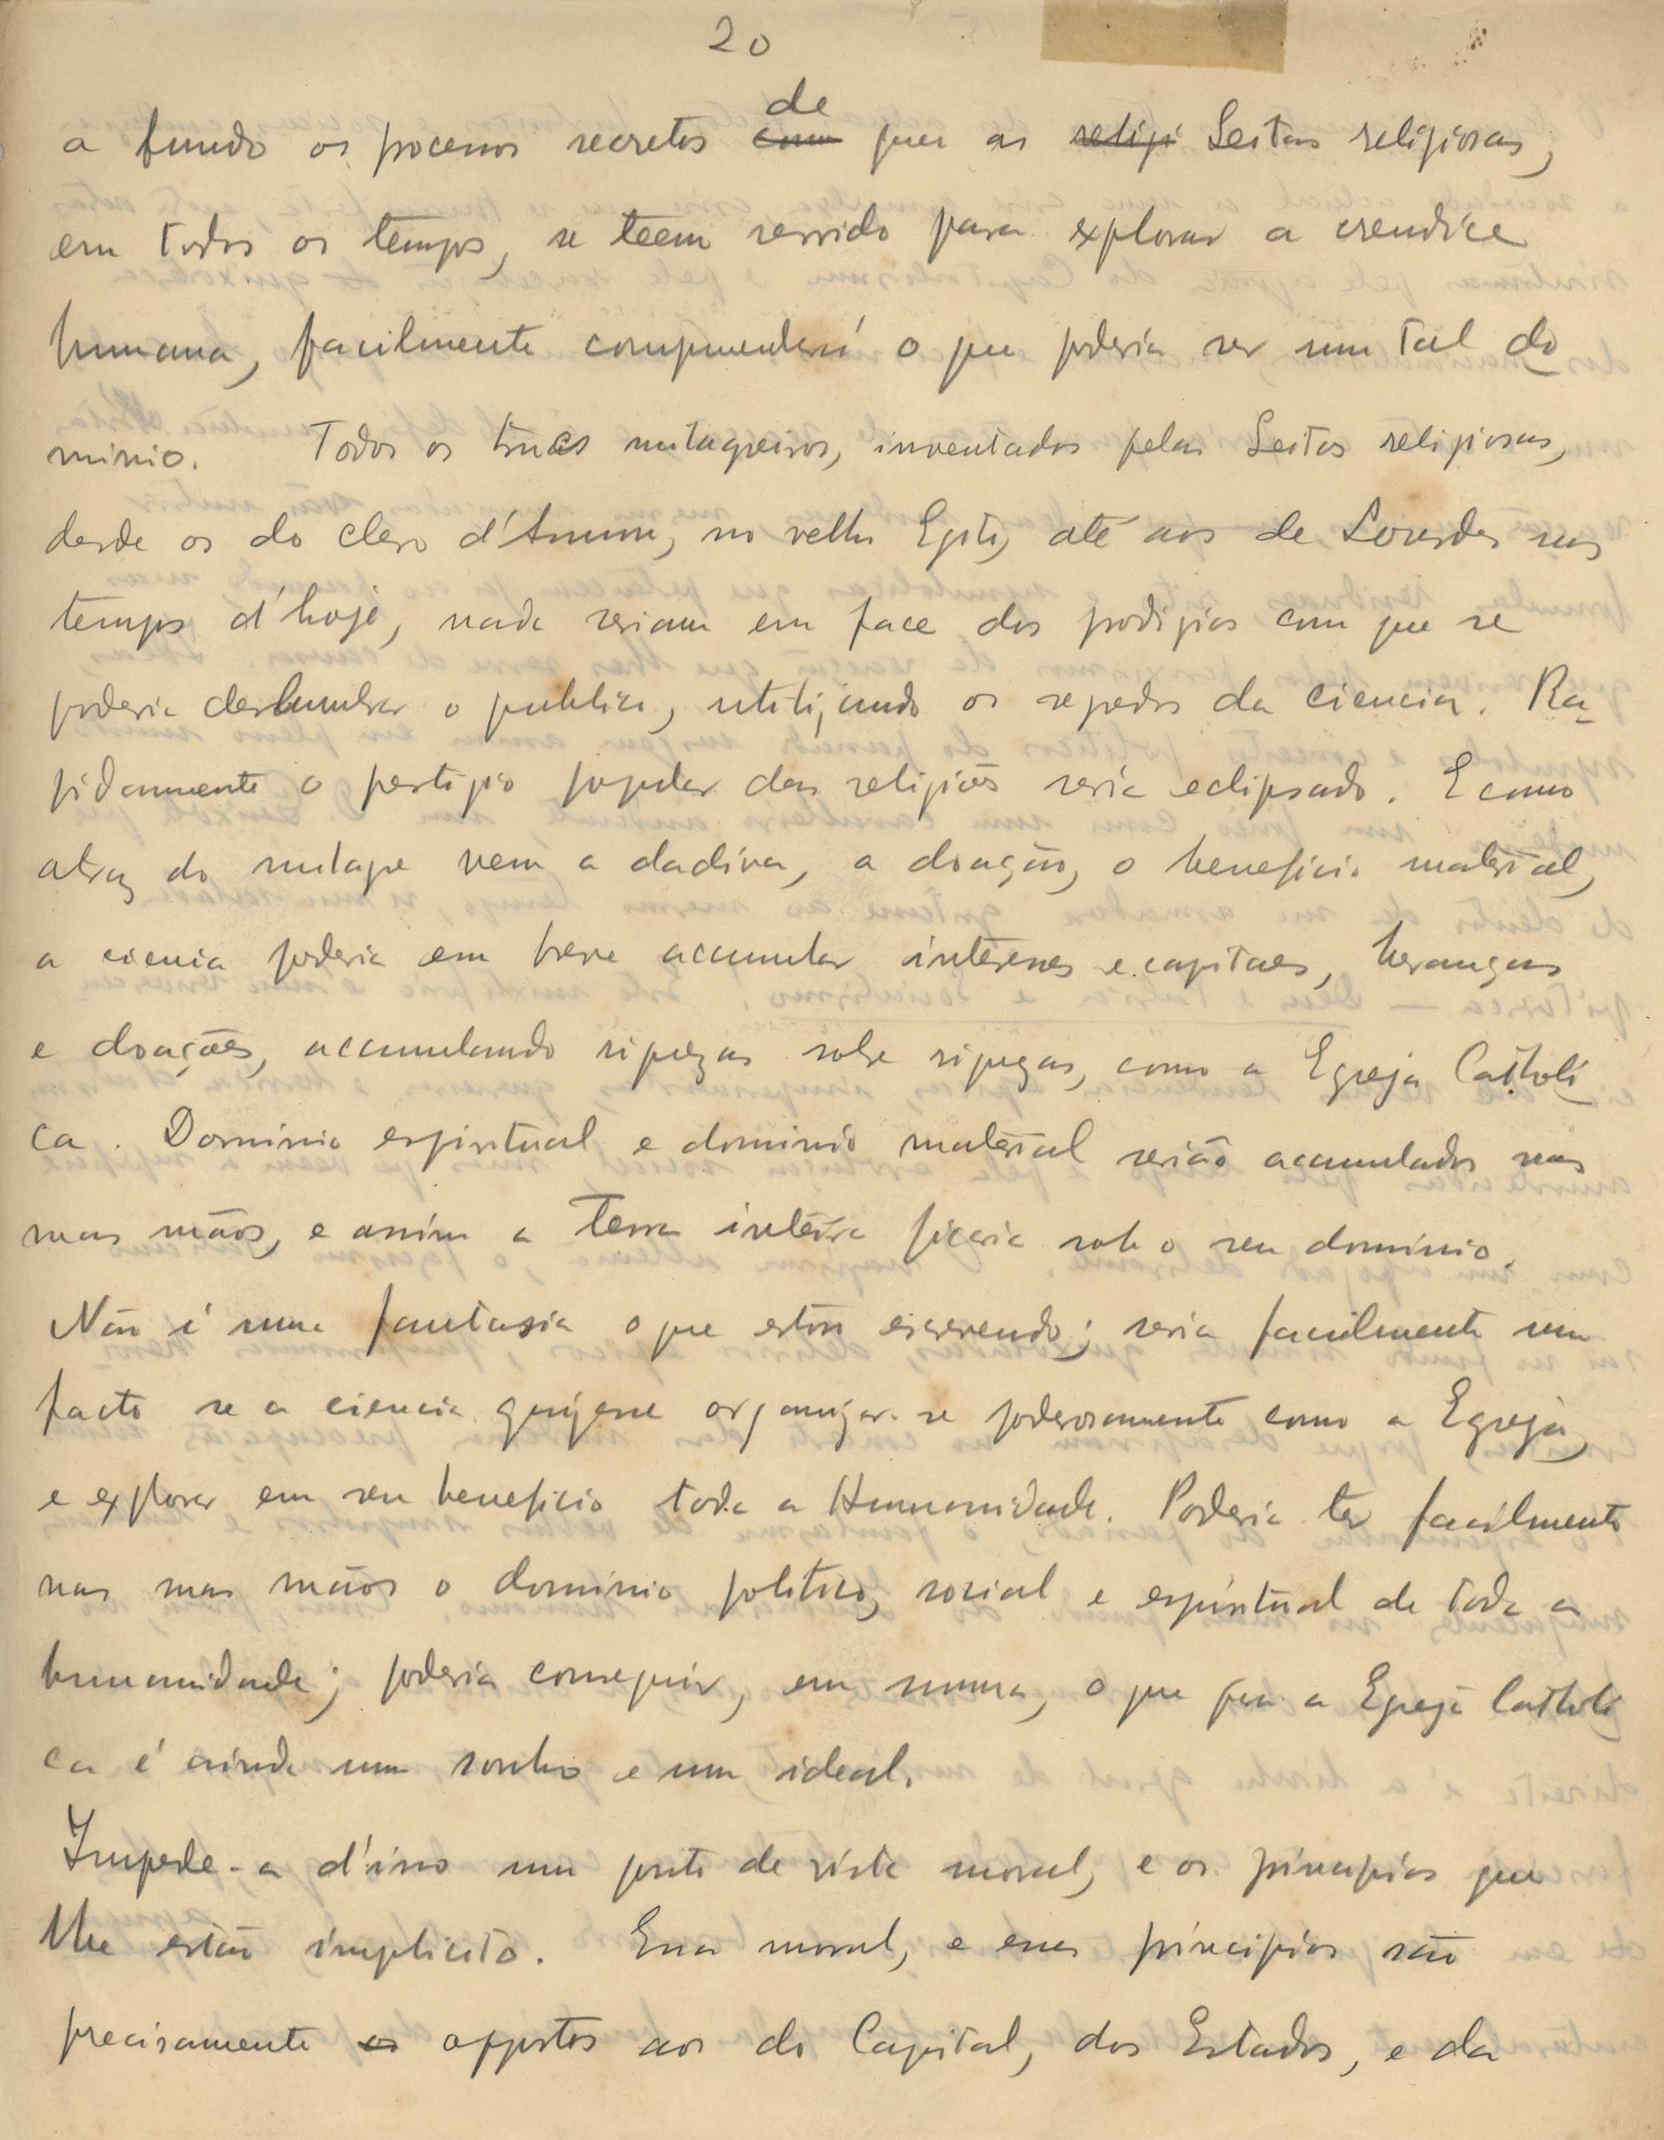 20
de
a fundo os processos secretos com que as religi Seitas religiosas,
em todos os tempos, se teem servido para explorar a crendice
humana, facilmente comprenderá o que poderia ser um tal do
minio. Todos os trucs milagreiros, inventados pelas Seitas religiosas,
desde os do clero d'Ammon, no velho Egito, até aos de Lourdes nos
tempos d'hoje, nada seriam em face dos prodigios com que se
poderia deslumbrar o publico, utilizando os segredos da ciencia. Ra-
pidamente o prestigio popular das religiões seria eclipsado. E como
atraz do milagre vem a dadiva, a doação, o beneficio material,
a ciencia poderia em breve acumular interesses e capitaes, heranças
e doações, acumulando riquezas sobre riquezas, como a Egreja Catholi
ca. Dominio espiritual e dominio material serião acumulados nas
suas mãos, e assim a Terra inteira ficaria sob o seu dominio.
Não é uma fantasia o que estou escrevendo; seria facilmente um
facto se a ciencia quizesse organizar-se poderosamente como a Egreja,
e explorar em seu beneficio toda a Humanidade. Poderia ter facilmente
nas suas mãos o dominio politico, social e espiritual de toda a
humanidade; poderia conseguir, em summa, o que para a Egreja Catholi
ca é ainda um sonho e um ideal.
Impede-a d'isso um ponto de vista moral, e os principios que
lhe estão implicito. Essa moral, e esses principios são
precisamente os oppostos aos do Capital, dos Estados, e da